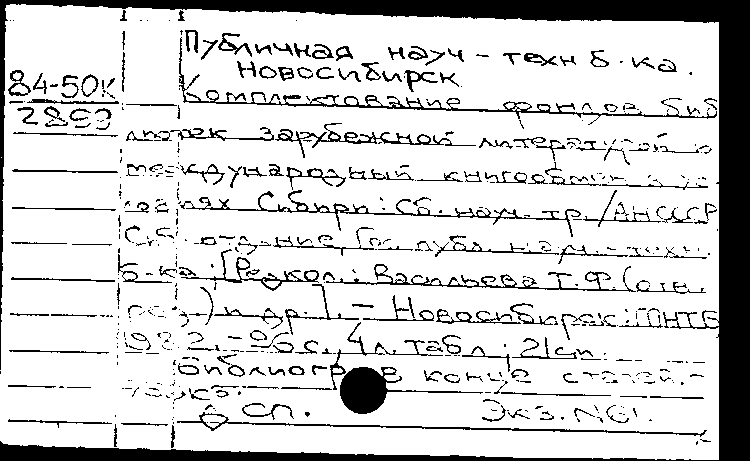 Публичная науч-техн б-ка.
Новосибирск
84-50К
2893
Комплектование фондов биб
лиотек зарубежной литературой и
международный книгообмен в ус-
ловиях Сибири: Сб. науч. тр./АНСССР
Сиб. отд-ние, Гос. публ. науч.-техн.
б-ка; [Редкол.: Васильева Т.Ф. (отв.
ред.) и др.]. – Новосибирск: ГПНТБ
1982. – 96 с., 4 л. табл.; 21 см.
Библиогр. в конце статей. –
сп. Экз. №61.